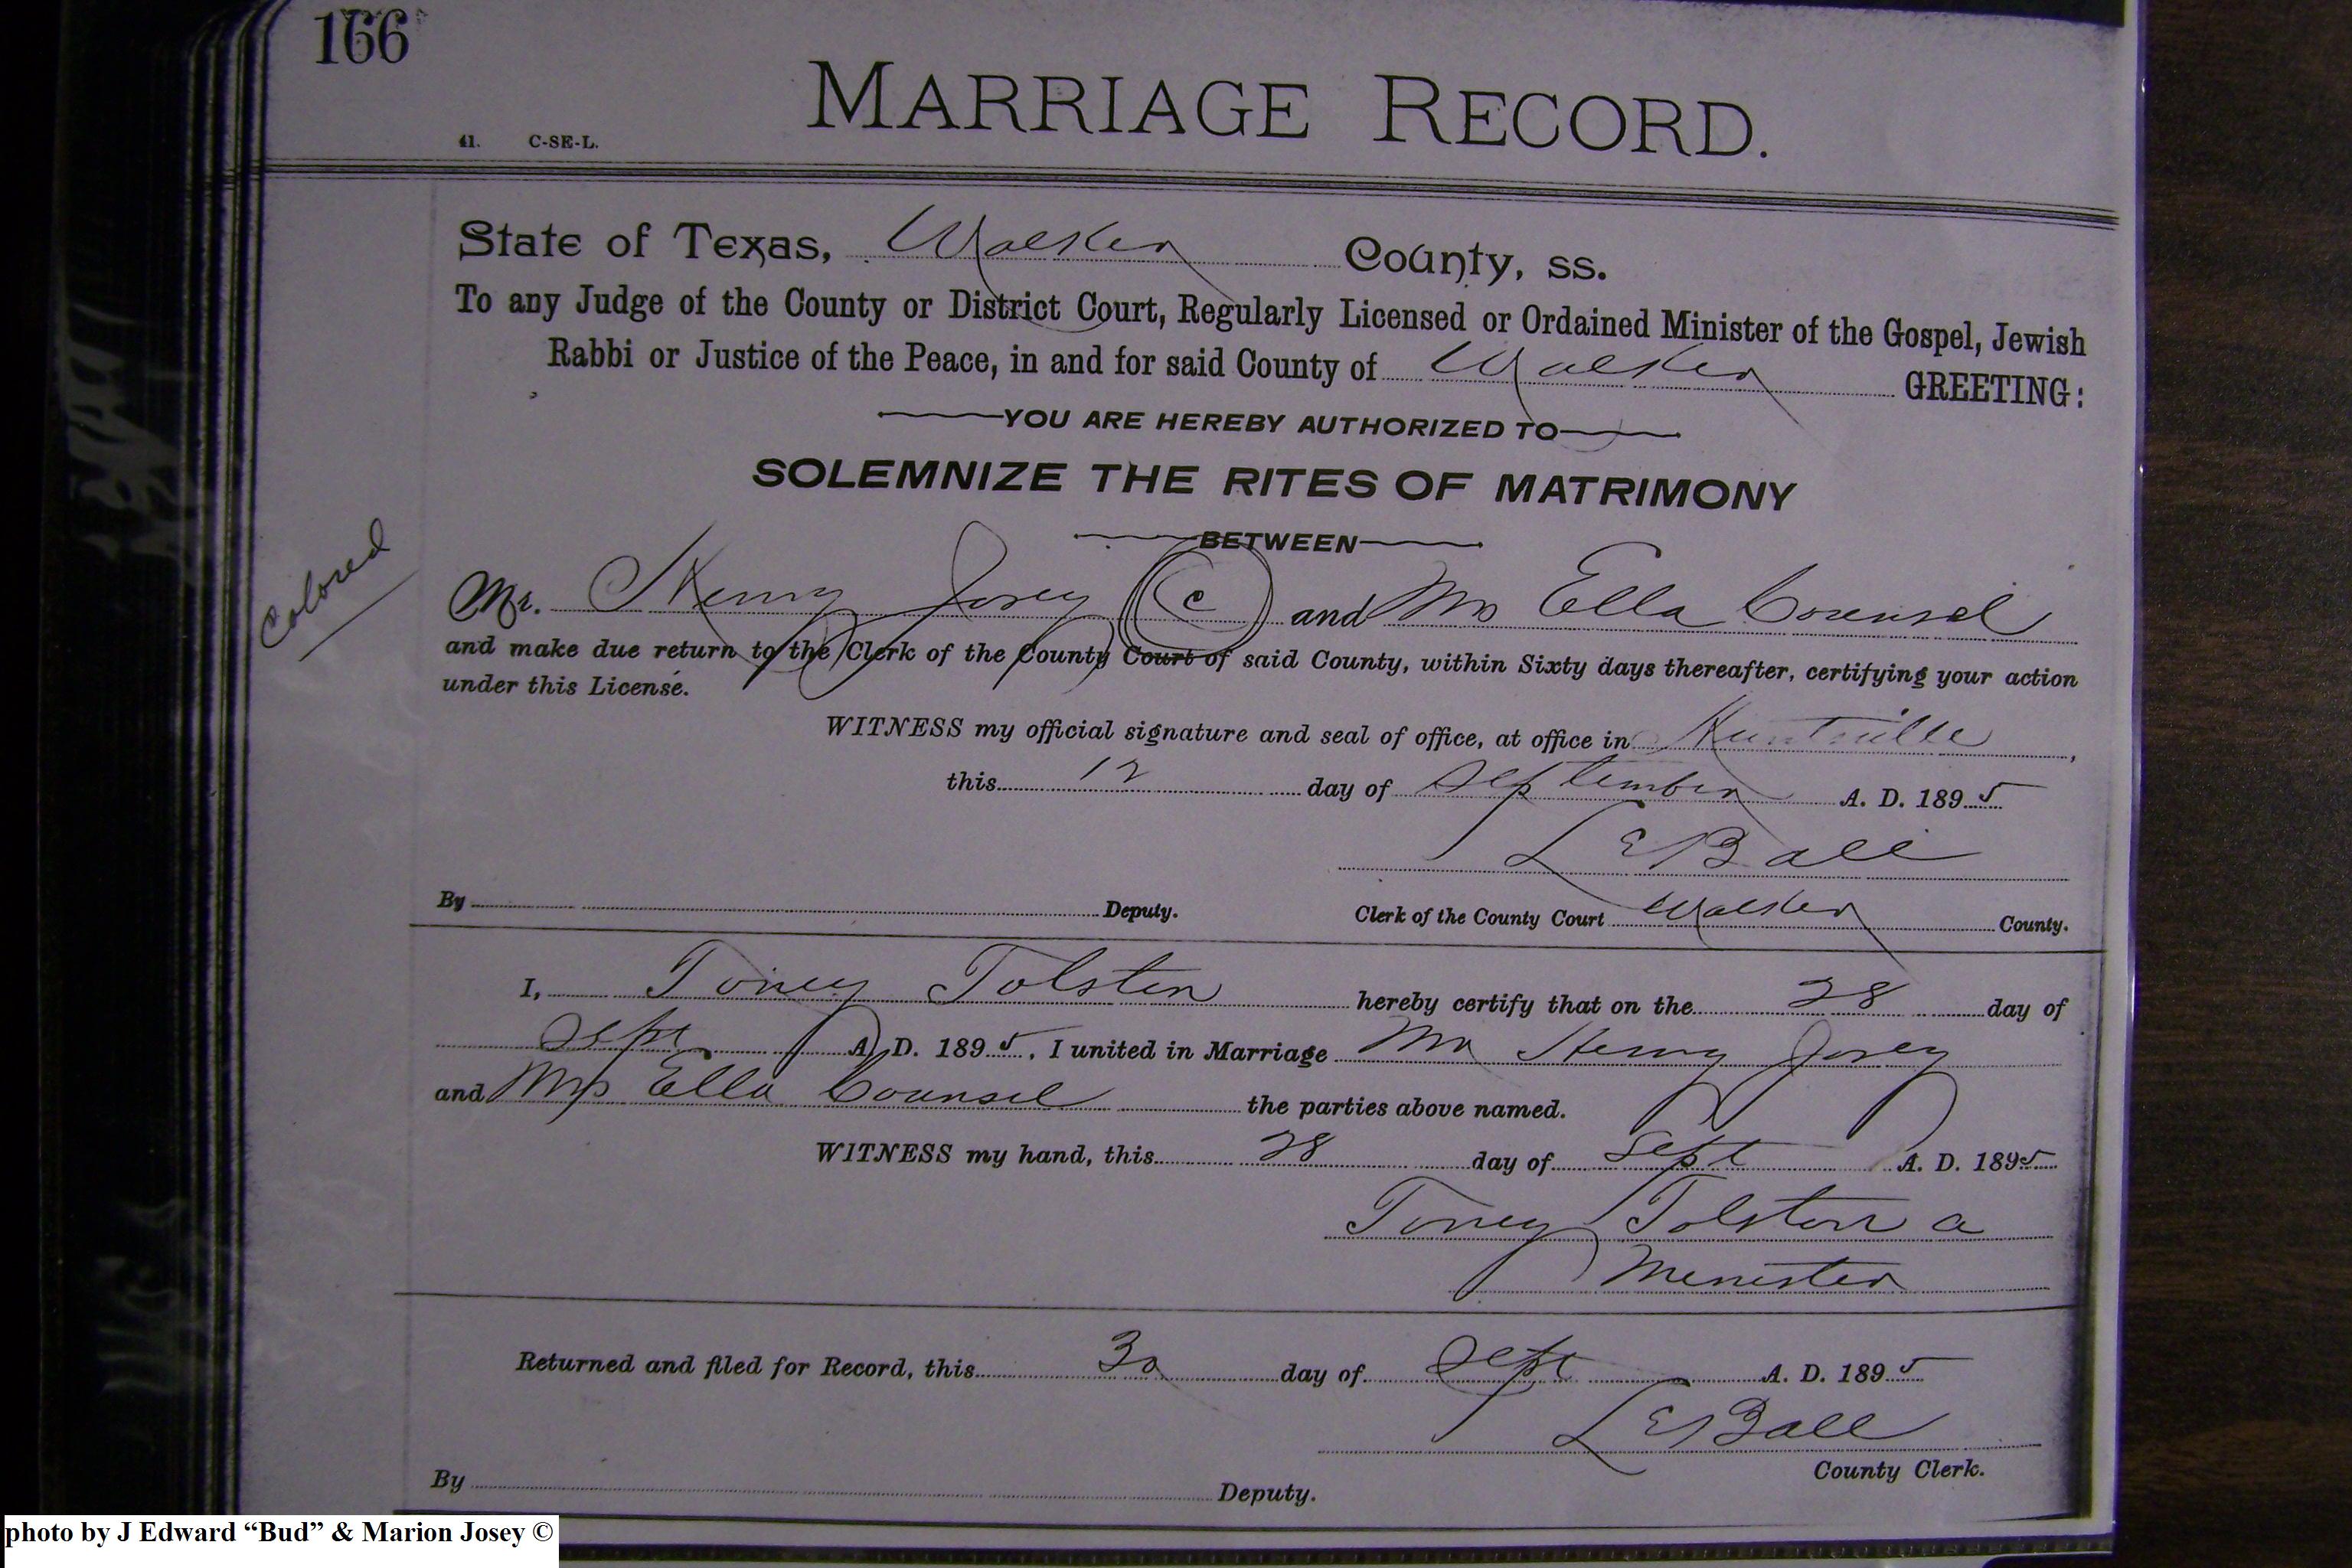 166
MARRIAGE RECORD.
41. C-SE-L.
State of Texas, Walker County, ss.
To any Judge of the County or District Court, Regularly Licensed or Ordained Minister of the Gospel, Jewish
Rabbi or Justice of the Peace, in and for said County of Walker GREETING:
YOU ARE HEREBY AUTHORIZED TO
SOLEMNIZE THE RITES OF MATRIMONY
BETWEEN
Colored
Mr. Henry Josey (C) and Mrs Ella Counsel
and make due return to the Clerk of the County Court of said County, within Sixty days thereafter, certifying your action
under this License.
WITNESS my official signature and seal of office, at office in Huntsville,
this 12 day of September A. D. 1895
L E Ball
By Deputy. Clerk of the County Court Walker County.
I, Toney Tolston hereby certify that on the 28 day of
Sept A. D. 1895, I united in Marriage Mr Henry Josey
and Mrs Ella Counsel the parties above named.
WITNESS my hand, this 28 day of Sept A. D. 1895
Toney Tolston a
Menister
Returned and filed for Record, this 30 day of Sept A. D. 1895
L E Ball
County Clerk.
By Deputy.
photo by J Edward “Bud” & Marion Josey ©